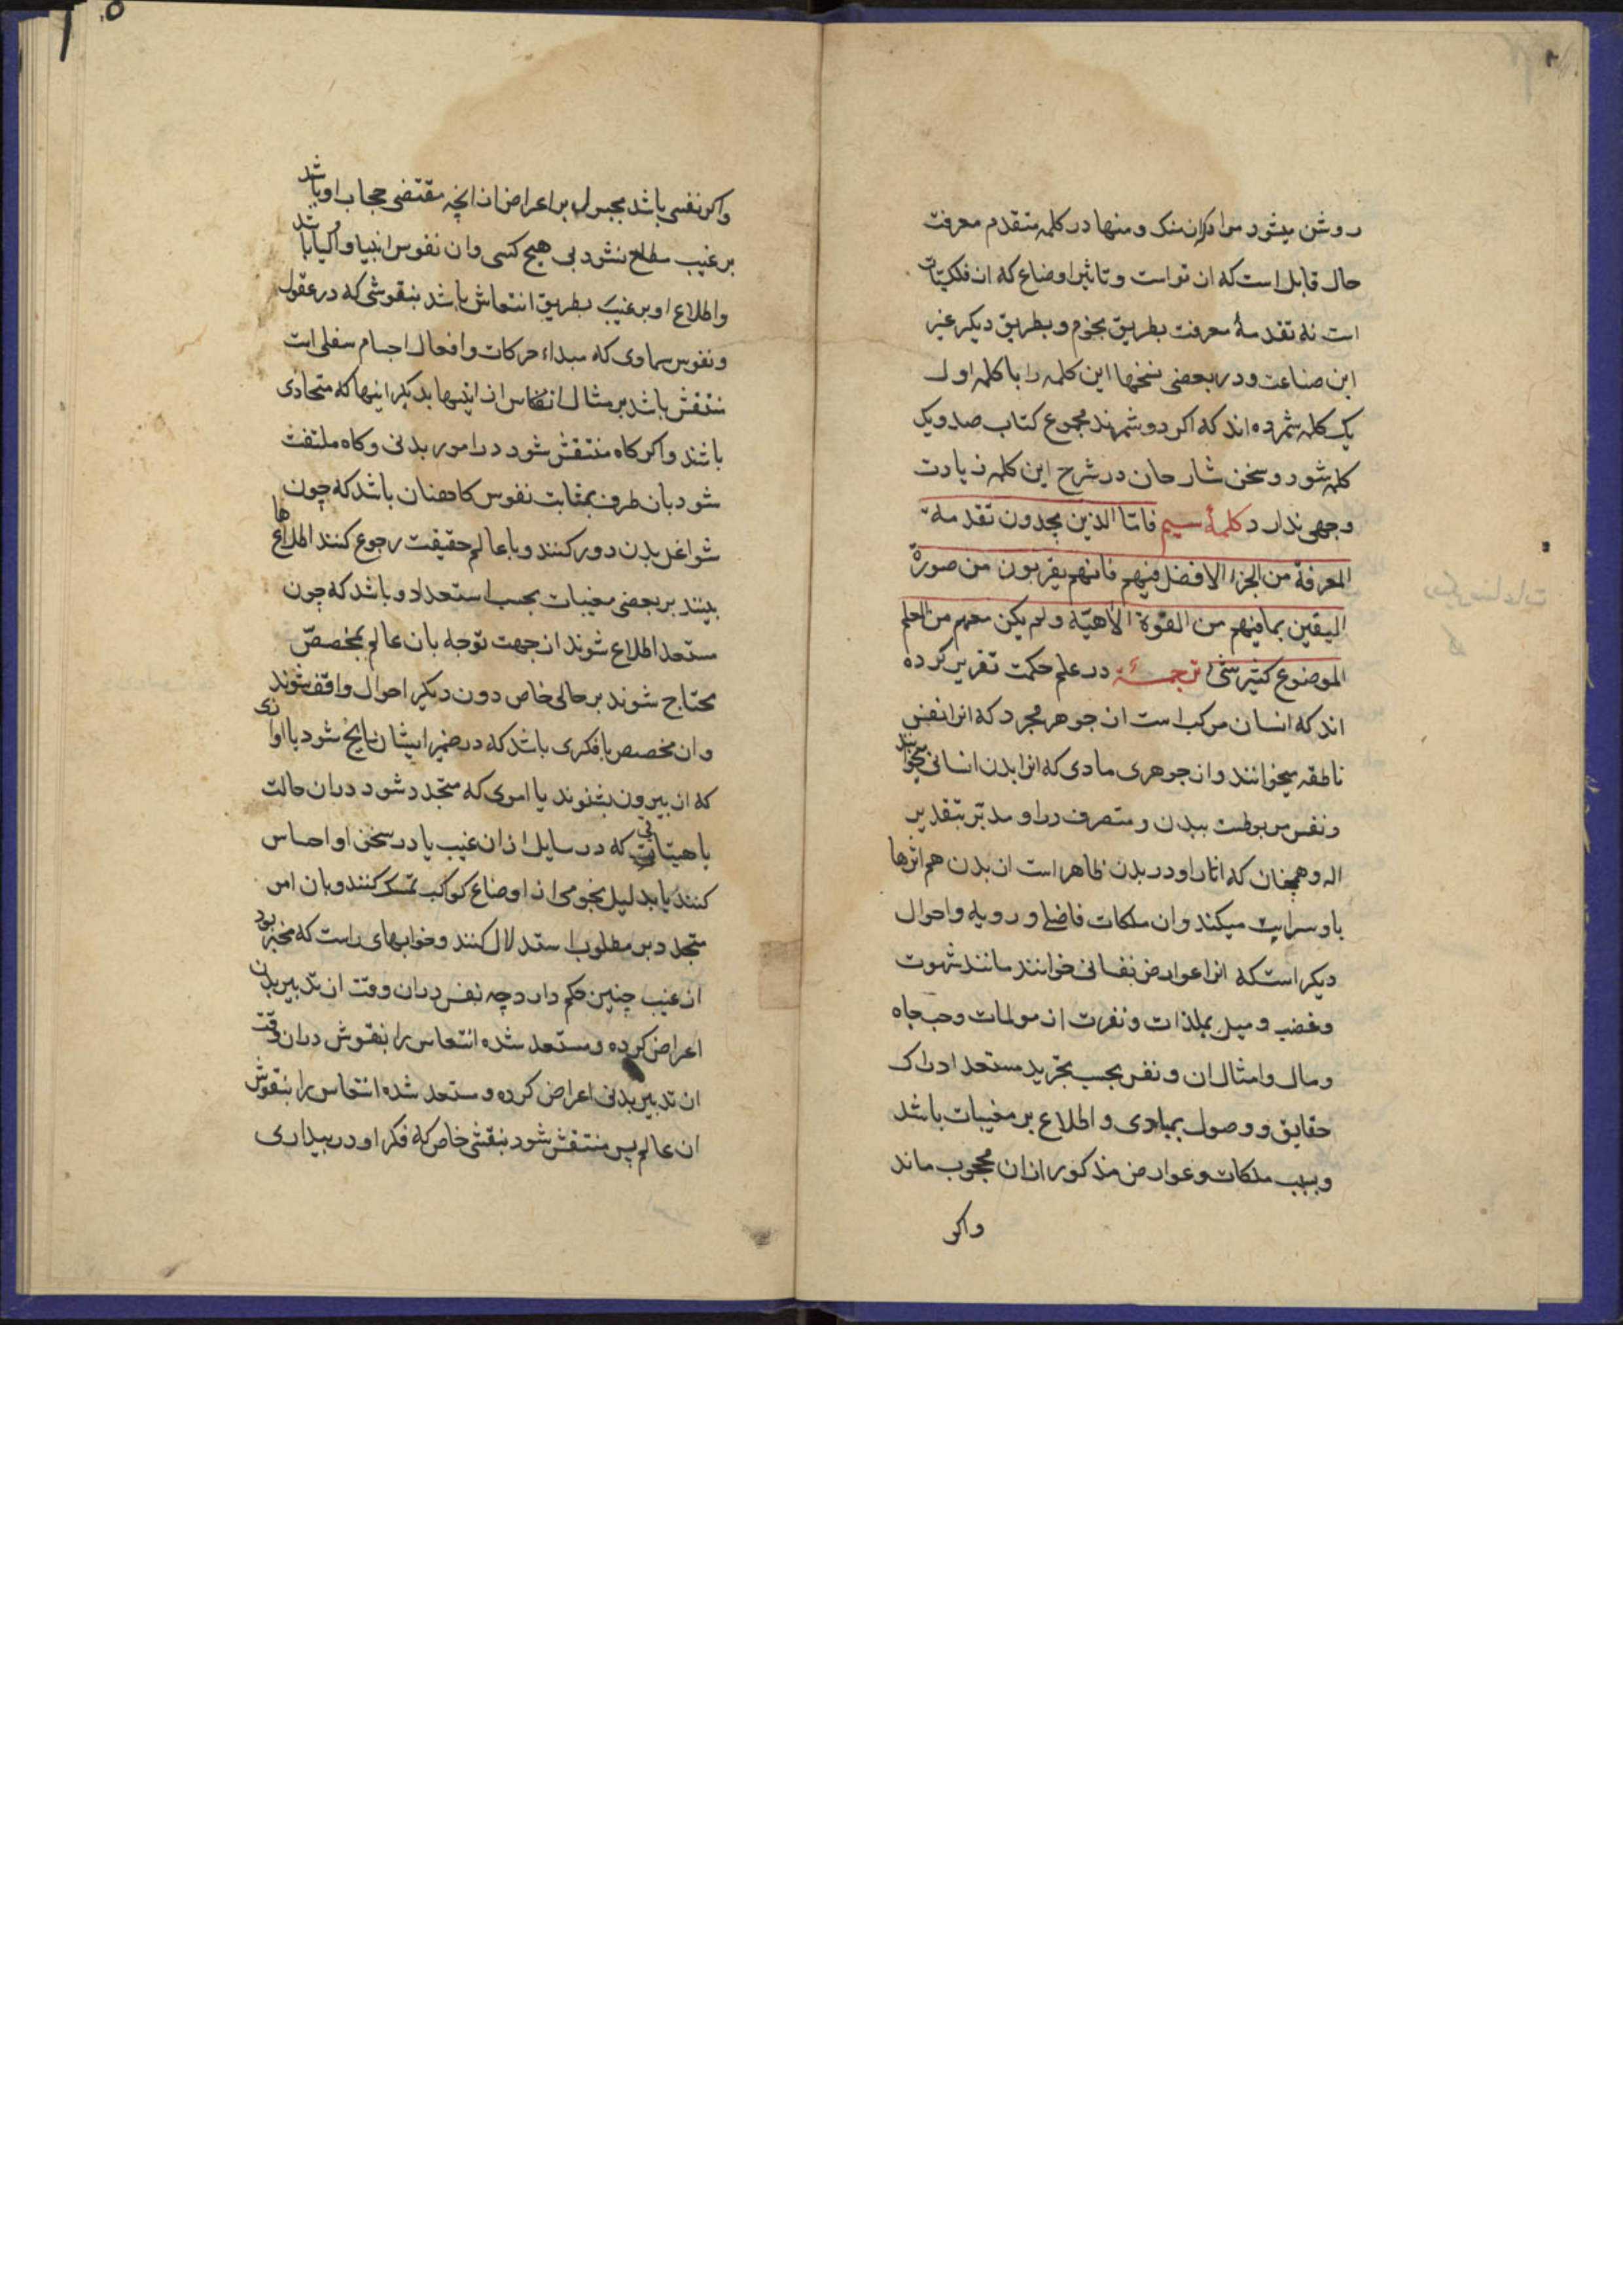 روشن میشود مراد از منک و منها در کلمه متقدم معرفت
حال قابل است که از تو است و تاثیر اوضاع که از فلکیات
است نه تقدمهٔ معرفت بطریق نجوم و بطریق دیگر غیر
این صناعت و در بعضی نسخها این کلمه را با کلمه اول
یک کلمه شمرده اند که اکر دو شمرند مجموع کتاب صد و یک
کلمه شود و سخن شارحان در شرح این کلمه زیادت
وجهی ندارد کلمهٔ سیم فامّا الذین یجدون تقدمة
المعرفة من الجزء الافضل فیهم فانهم یقربون من صورة
الیقین بما فیهم من القوّة الالاهیّة و لم یکن معهم من العلم
الموضوع کثیر شیٔ ترجمهٔ در علم حکمت تقریر کرده
اند که انسان مرکب است از جوهر مجرد که انرا نفس
ناطقه میخوانند و از جوهری مادی که انرا بدن انسانی میخوانند
و نفس مربوطست ببدن و متصرف در او و مدبّر بتقدیر
اله و همچنان که اثار او در بدن ظاهر است از بدن هم اثرها
باو سرایت میکند و ان ملکات فاضله و رویه و احوال
دیگر است که انرا عوارض نفسانی خوانند مانند شهوت
و غضب و میل بملذات و نفرت از مولمات و حب جاه
و مال و امثال ان و نفس بحسب تجرید مستعد ادراک
حقایق و وصول بمبادی و اطلاع بر مغیبات باشد
و بسبب ملکات و عوارض مذکور از ان محجوب ماند
و اکر
و اکر نفسی باشد مجبول بر اعراض از انچه مقتضی حجاب او باشد
بر غیب مطلع شود بی هیچ کسبی و ان نفوس انبیا و اولیا باشد
و اطلاع او بر غیب بطریق انتعاش باشد بنقوشی که در عقول
و نفوس سماوی که مبداء حرکات و افعال اجسام سفلی است
منتقش باشد بر مثال انعکاس از اینها بدیگر اینها که متحاذی
باشند و اکر کاه منتقش شود در امور بدنی و کاه ملتفت
شود بان طرف بمثابت نفوس کاهنان باشد که چون
شواغل بدن دور کنند و با عالم حقیقت رجوع کنند اطلاعها
بینند بر بعضی مغیبات بحسب استعداد و باشد که چون
مستعد اطلاع شوند از جهت توجه بان عالم بمخصصّ
محتاج شوند بر حالی خاص دون دیگر احوال واقف شوند
و ان مخصص یا فکری باشد که در ضمیر ایشان سانح شود یا اوازی
که از بیرون بشنوند یا امری که متجدد شود در ان حالت
یا هیئاتی که در سایل از ان غیب یا در سخن او احساس
کنند یا بدلیل نجومی از اوضاع کواکب تمسک کنند و بان امر
متجدد بر مطلوب استدلال کنند و خوابهای راست که مخبر بود
از غیب چنین حکم دارد چه نفس در ان وقت از تدبیر بدن
اعراض کرده و مستعد شده انتعاس را بنقوش در ان وقت
از تدبیر بدنی اعراض کرده و مستعد شده انتعاس را بنقوش
ان عالم پس منتقش شود بنقشی خاص که فکر او در بیداری